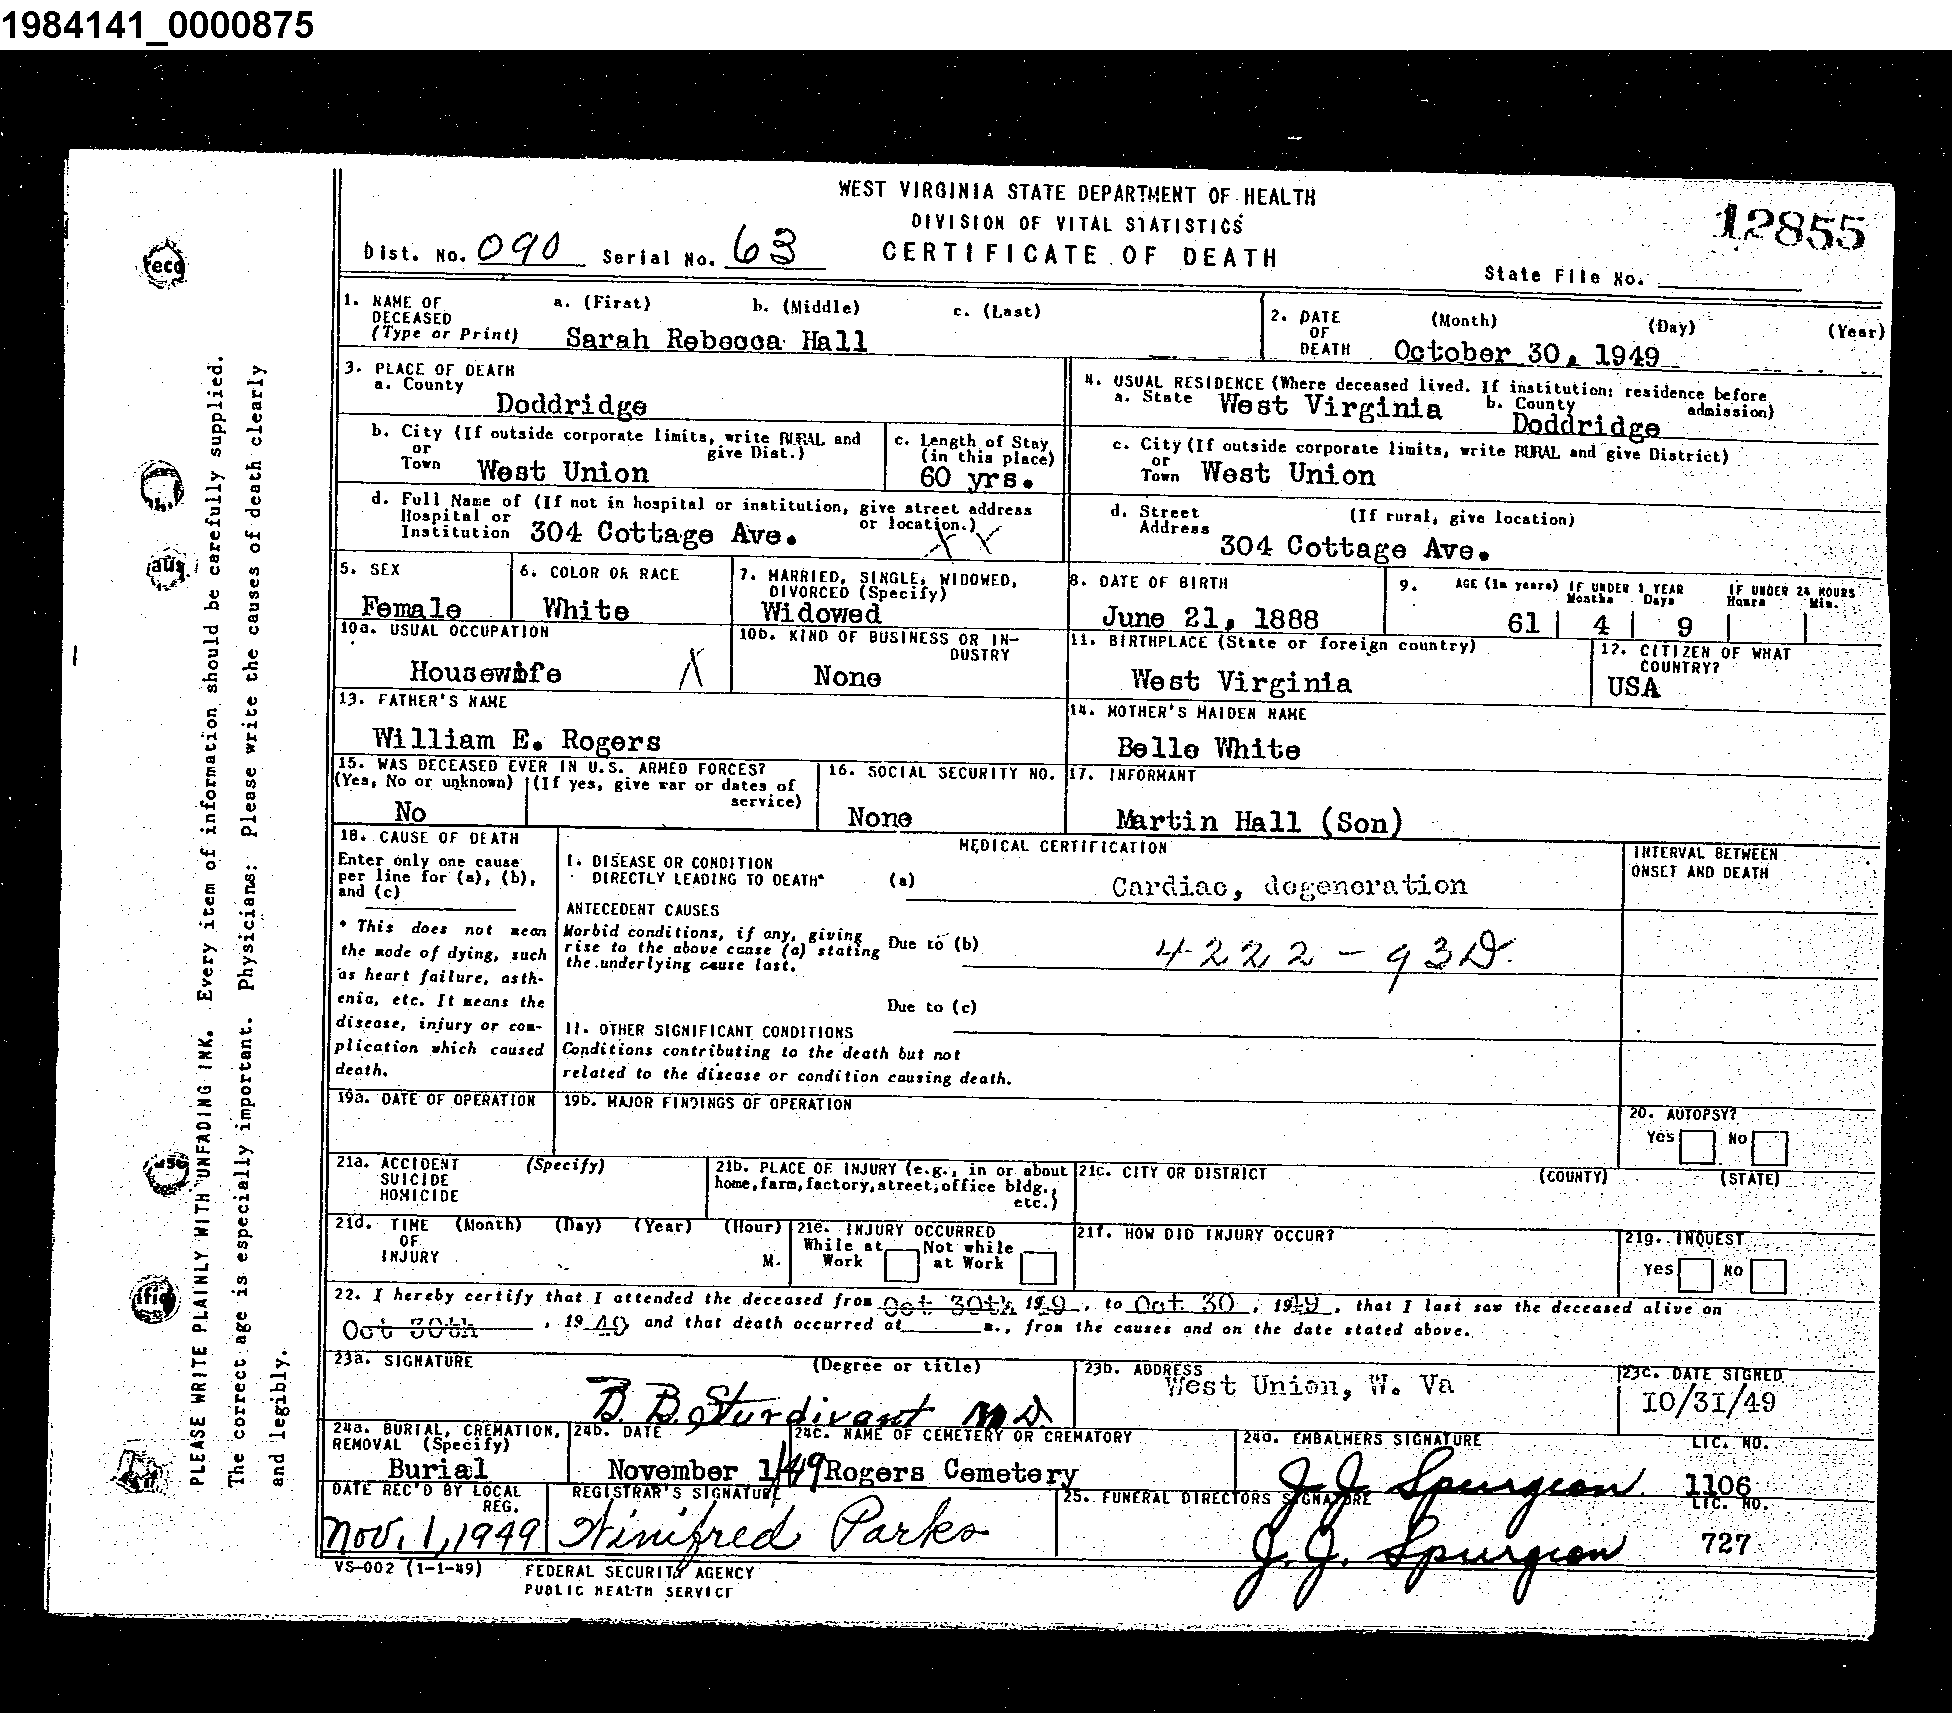 1984141_0000875
WEST VIRGINIA STATE DEPARTMENT OF HEALTH
DIVISION OF VITAL STATISTICS
CERTIFICATE OF DEATH
12855
Dist. No. 090 Serial No. 63
State File No.
1. NAME OF DECEASED (Type or Print) a. (First) b. (Middle) c. (Last)
Sarah Rebecca Hall
2. DATE OF DEATH (Month) (Day) (Year)
October 30, 1949
3. PLACE OF DEATH
a. County
Doddridge
4. USUAL RESIDENCE (Where deceased lived. If institution: residence before admission)
a. State West Virginia b. County Doddridge
b. City (If outside corporate limits, write RURAL and give Dist.)
or Town West Union
c. Length of Stay (in this place)
60 yrs.
c. City (If outside corporate limits, write RURAL and give District)
or Town West Union
d. Full Name of (If not in hospital or institution, give street address or location.)
Hospital or Institution 304 Cottage Ave. X X
d. Street Address (If rural, give location)
304 Cottage Ave.
5. SEX
Female
6. COLOR OR RACE
White
7. MARRIED, SINGLE, WIDOWED, DIVORCED (Specify)
Widowed
8. DATE OF BIRTH
June 21, 1888
9. AGE (In years) IF UNDER 1 YEAR Months Days IF UNDER 24 HOURS Hours Min.
61 4 9
10a. USUAL OCCUPATION
Housewife X
10b. KIND OF BUSINESS OR INDUSTRY
None
11. BIRTHPLACE (State or foreign country)
West Virginia
12. CITIZEN OF WHAT COUNTRY?
USA
13. FATHER'S NAME
William E. Rogers
14. MOTHER'S MAIDEN NAME
Belle White
15. WAS DECEASED EVER IN U.S. ARMED FORCES?
(Yes, No or unknown) (If yes, give war or dates of service)
No
16. SOCIAL SECURITY NO.
None
17. INFORMANT
Martin Hall (Son)
18. CAUSE OF DEATH
Enter only one cause per line for (a), (b), and (c)
* This does not mean the mode of dying, such as heart failure, asthenia, etc. It means the disease, injury or complication which caused death.
MEDICAL CERTIFICATION
INTERVAL BETWEEN ONSET AND DEATH
I. DISEASE OR CONDITION DIRECTLY LEADING TO DEATH* (a) Cardiac, degeneration
ANTECEDENT CAUSES
Morbid conditions, if any, giving rise to the above cause (a) stating the underlying cause last.
Due to (b) 4222 - 93D.
Due to (c)
II. OTHER SIGNIFICANT CONDITIONS
Conditions contributing to the death but not related to the disease or condition causing death.
19a. DATE OF OPERATION
19b. MAJOR FINDINGS OF OPERATION
20. AUTOPSY?
Yes No
21a. ACCIDENT SUICIDE HOMICIDE (Specify)
21b. PLACE OF INJURY (e.g., in or about home, farm, factory, street, office bldg., etc.)
21c. CITY OR DISTRICT (COUNTY) (STATE)
21d. TIME OF INJURY (Month) (Day) (Year) (Hour) M.
21e. INJURY OCCURRED
While at Work Not while at Work
21f. HOW DID INJURY OCCUR?
21g. INQUEST
Yes No
22. I hereby certify that I attended the deceased from Oct 30th 1949, to Oct 30, 1949, that I last saw the deceased alive on
Oct 30th, 1949 and that death occurred at m., from the causes and on the date stated above.
23a. SIGNATURE (Degree or title)
B. B. Sturdivant M.D.
23b. ADDRESS
West Union, W. Va
23c. DATE SIGNED
10/31/49
24a. BURIAL, CREMATION, REMOVAL (Specify)
Burial
24b. DATE
November 1/49
24c. NAME OF CEMETERY OR CREMATORY
Rogers Cemetery
24d. EMBALMERS SIGNATURE LIC. NO.
J. J. Spurgeon 1106
DATE REC'D BY LOCAL REG.
Nov. 1, 1949
REGISTRAR'S SIGNATURE
Winifred Parks
25. FUNERAL DIRECTORS SIGNATURE LIC. NO.
J. J. Spurgeon 727
VS-002 (1-1-49)
FEDERAL SECURITY AGENCY
PUBLIC HEALTH SERVICE
PLEASE WRITE PLAINLY WITH UNFADING INK. Every item of information should be carefully supplied.
The correct age is especially important. Physicians: Please write the causes of death clearly
and legibly.